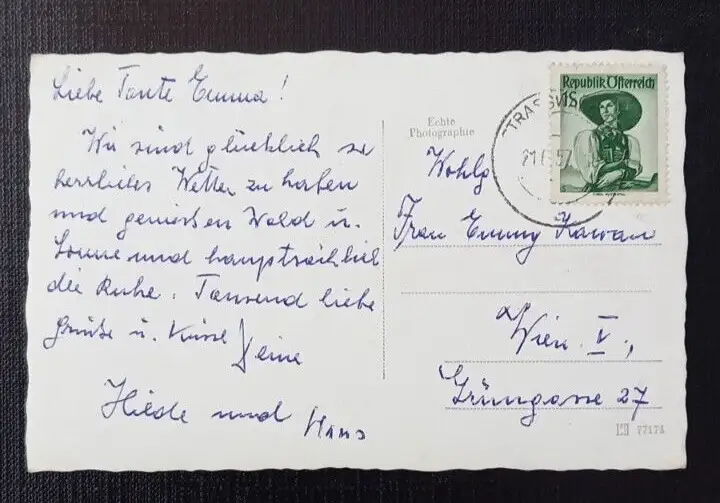 Liebe Tante Emma!
Wir sind glücklich so
herrliches Wetter zu haben
und genießen Wald u.
Sonne und hauptsächlich
die Ruhe. Tausend liebe
Grüße u. Küsse Deine
Heide und Hans
Echte
Photographie
Republik Österreich
1S
Wohlg
Frau Emmy
Wien V.,
Grüngasse 27
77174